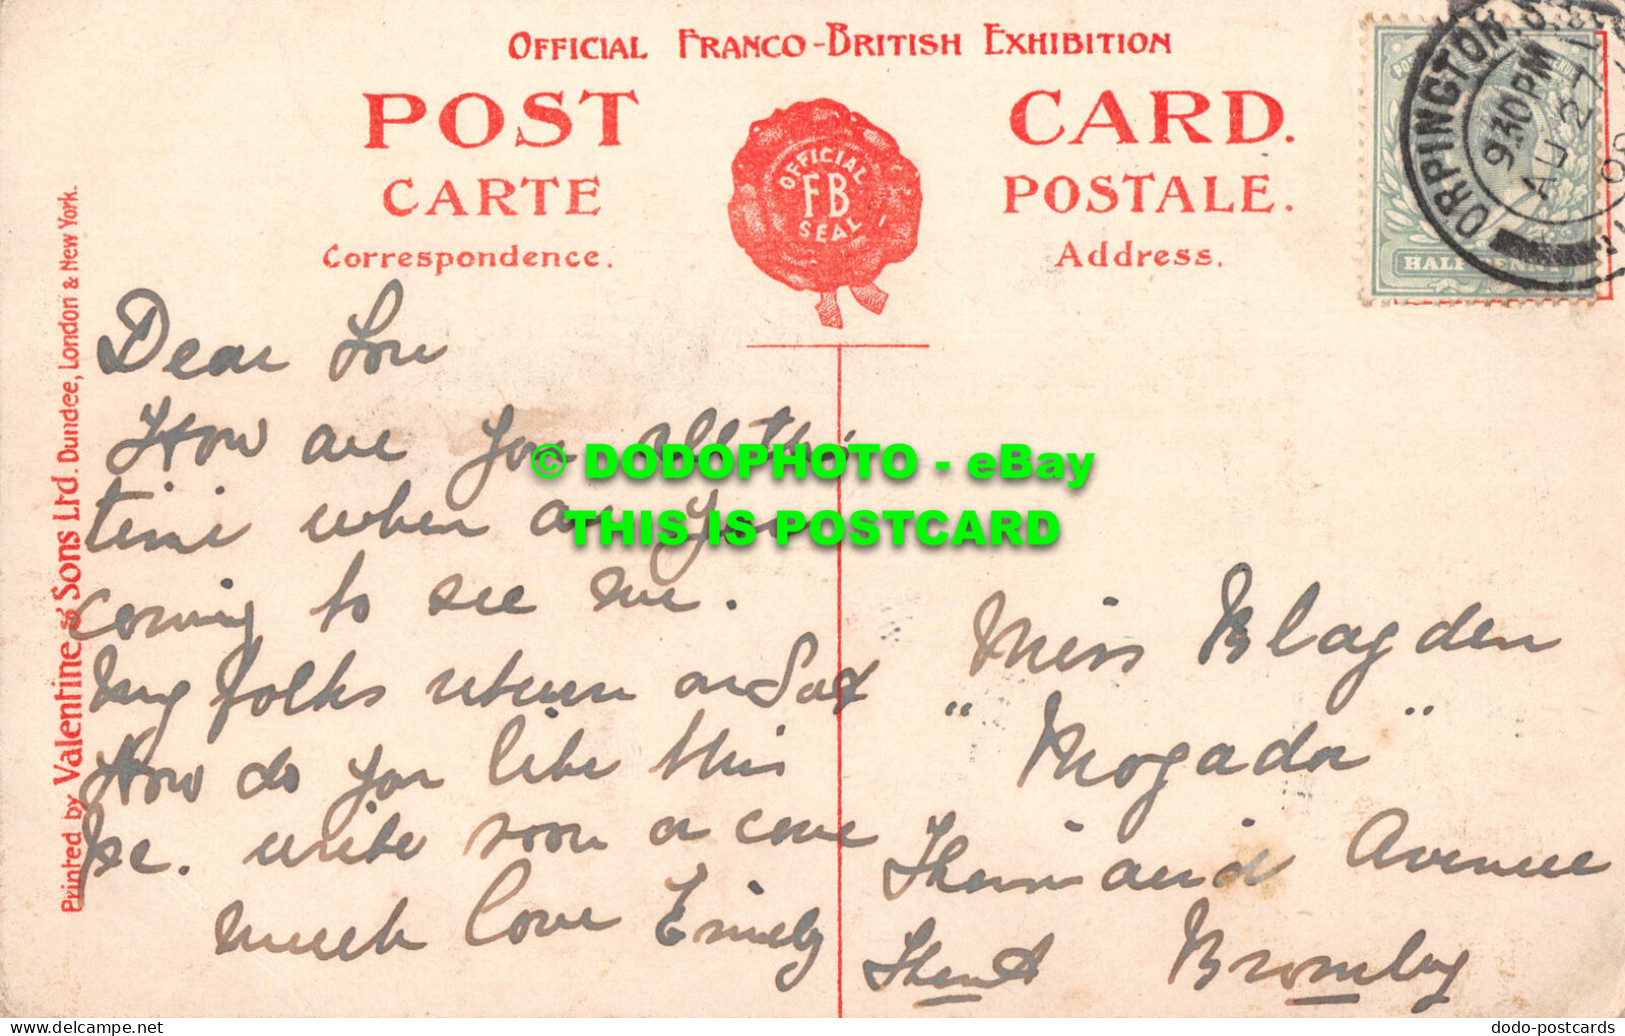 OFFICIAL FRANCO-BRITISH EXHIBITION
POST CARD.
CARTE POSTALE.
Correspondence. Address.
OFFICIAL
FB
SEAL
ORPINGTON. S.
9.30PM
AU 27
08
HALFPENNY
Printed by Valentine & Sons Ltd. Dundee, London & New York.
Dear Lou
How are you all this
time when are you
coming to see me.
My folks return on Sat
How do you like this
pc. write soon or come
much love Emily
Miss Blagden
"Mogador"
Avenue
Bromley
© DODOPHOTO - eBay
THIS IS POSTCARD
dodo-postcards